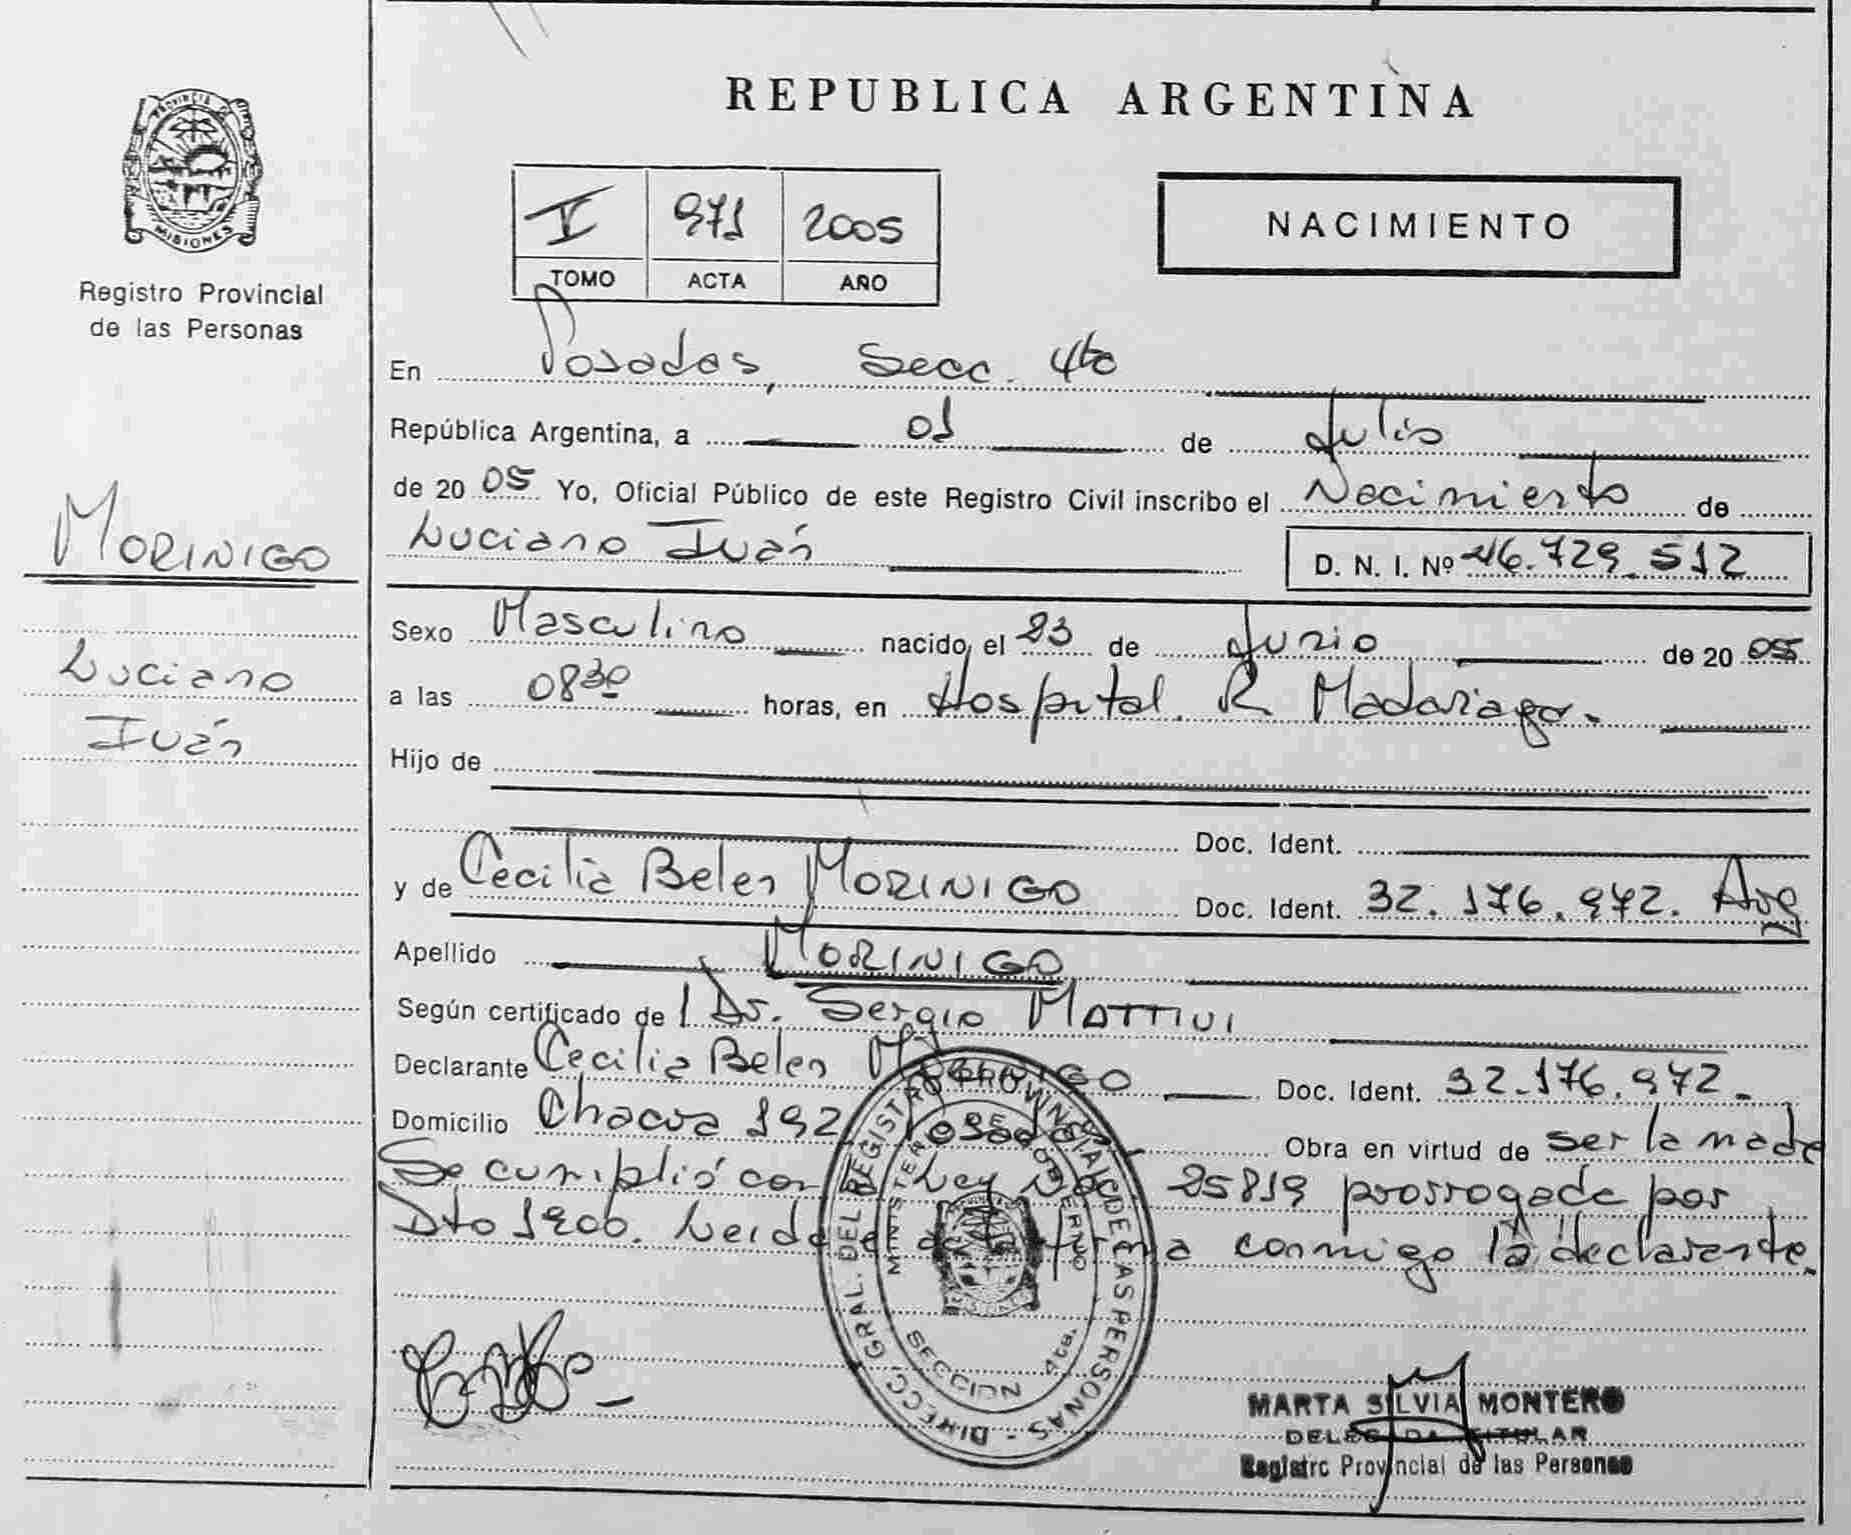 PROVINCIA DE
MISIONES
Registro Provincial
de las Personas
MORINIGO
Luciano
Iván
REPUBLICA ARGENTINA
971 2005
TOMO ACTA AÑO
NACIMIENTO
En Posadas, Secc. 4ta
República Argentina, a 01 de Julio
de 20 05 Yo, Oficial Público de este Registro Civil inscribo el Nacimiento de
Luciano Iván D. N. I. Nº 46.729.512
Sexo Masculino nacido el 23 de Junio de 20 05
a las 0830 horas, en Hospital R Madariaga.
Hijo de
Doc. Ident.
y de Cecilia Belen MORINIGO Doc. Ident. 32.176.972. Arg
Apellido MORINIGO
Según certificado de Dr. Sergio MATTIVI
Declarante Cecilia Belen MORINIGO Doc. Ident. 32.176.972.
Domicilio Chacra 192 Posadas Obra en virtud de ser la madre
Se cumplió con Ley 25819 prorrogada por
Dto 1900. Leida firma conmigo la declarante.
DIRECC. GRAL. DEL REGISTRO PROVINCIAL DE LAS PERSONAS -
MINISTERIO DE GOBIERNO
SECCION 4ta.
MARTA SILVIA MONTERO
DELEGADA TITULAR
Registro Provincial de las Personas